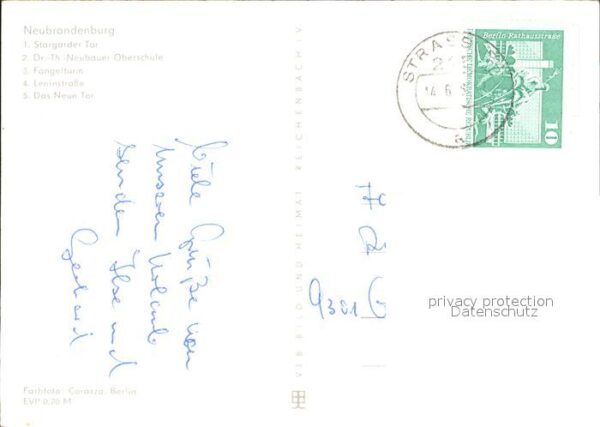 Neubrandenburg
1. Stargarder Tor
2. Dr.-Th.-Neubauer-Oberschule
3. Fangelturm
4. Leninstraße
5. Das Neue Tor
Viele Grüße von
unserem Urlaub
senden Ilse und
Gerhard
Farbfoto: Coranza, Berlin
EVP 0,20 M
VEB BILD UND HEIMAT REICHENBACH I. V.
STRASB
14.6.
a
Berlin, Rathausstraße
10
9301
privacy protection
Datenschutz